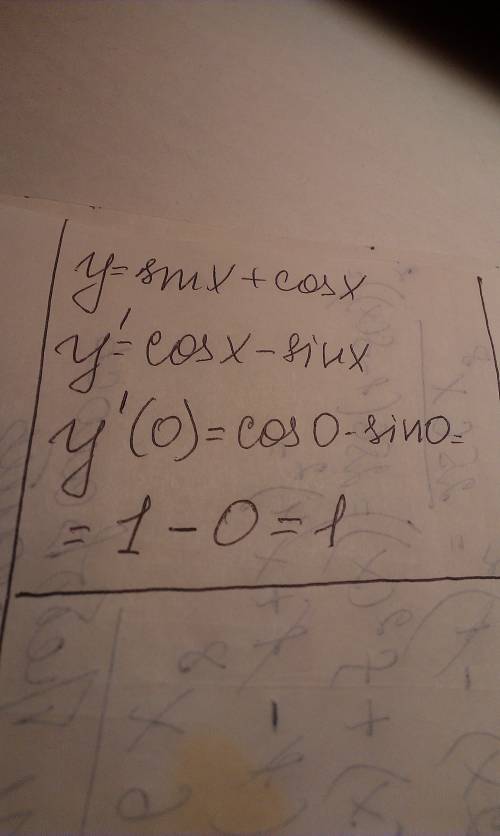 y = sinx + cosx
y' = cosx - sinx
y'(0) = cos0 - sin0 =
= 1 - 0 = 1